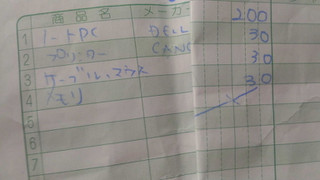 商品名 メーカー
1 ノートPC DELL 200
2 プリンター CANO 30
3 ケーブル、マウス 30
4 メモリ 30
5
6
7